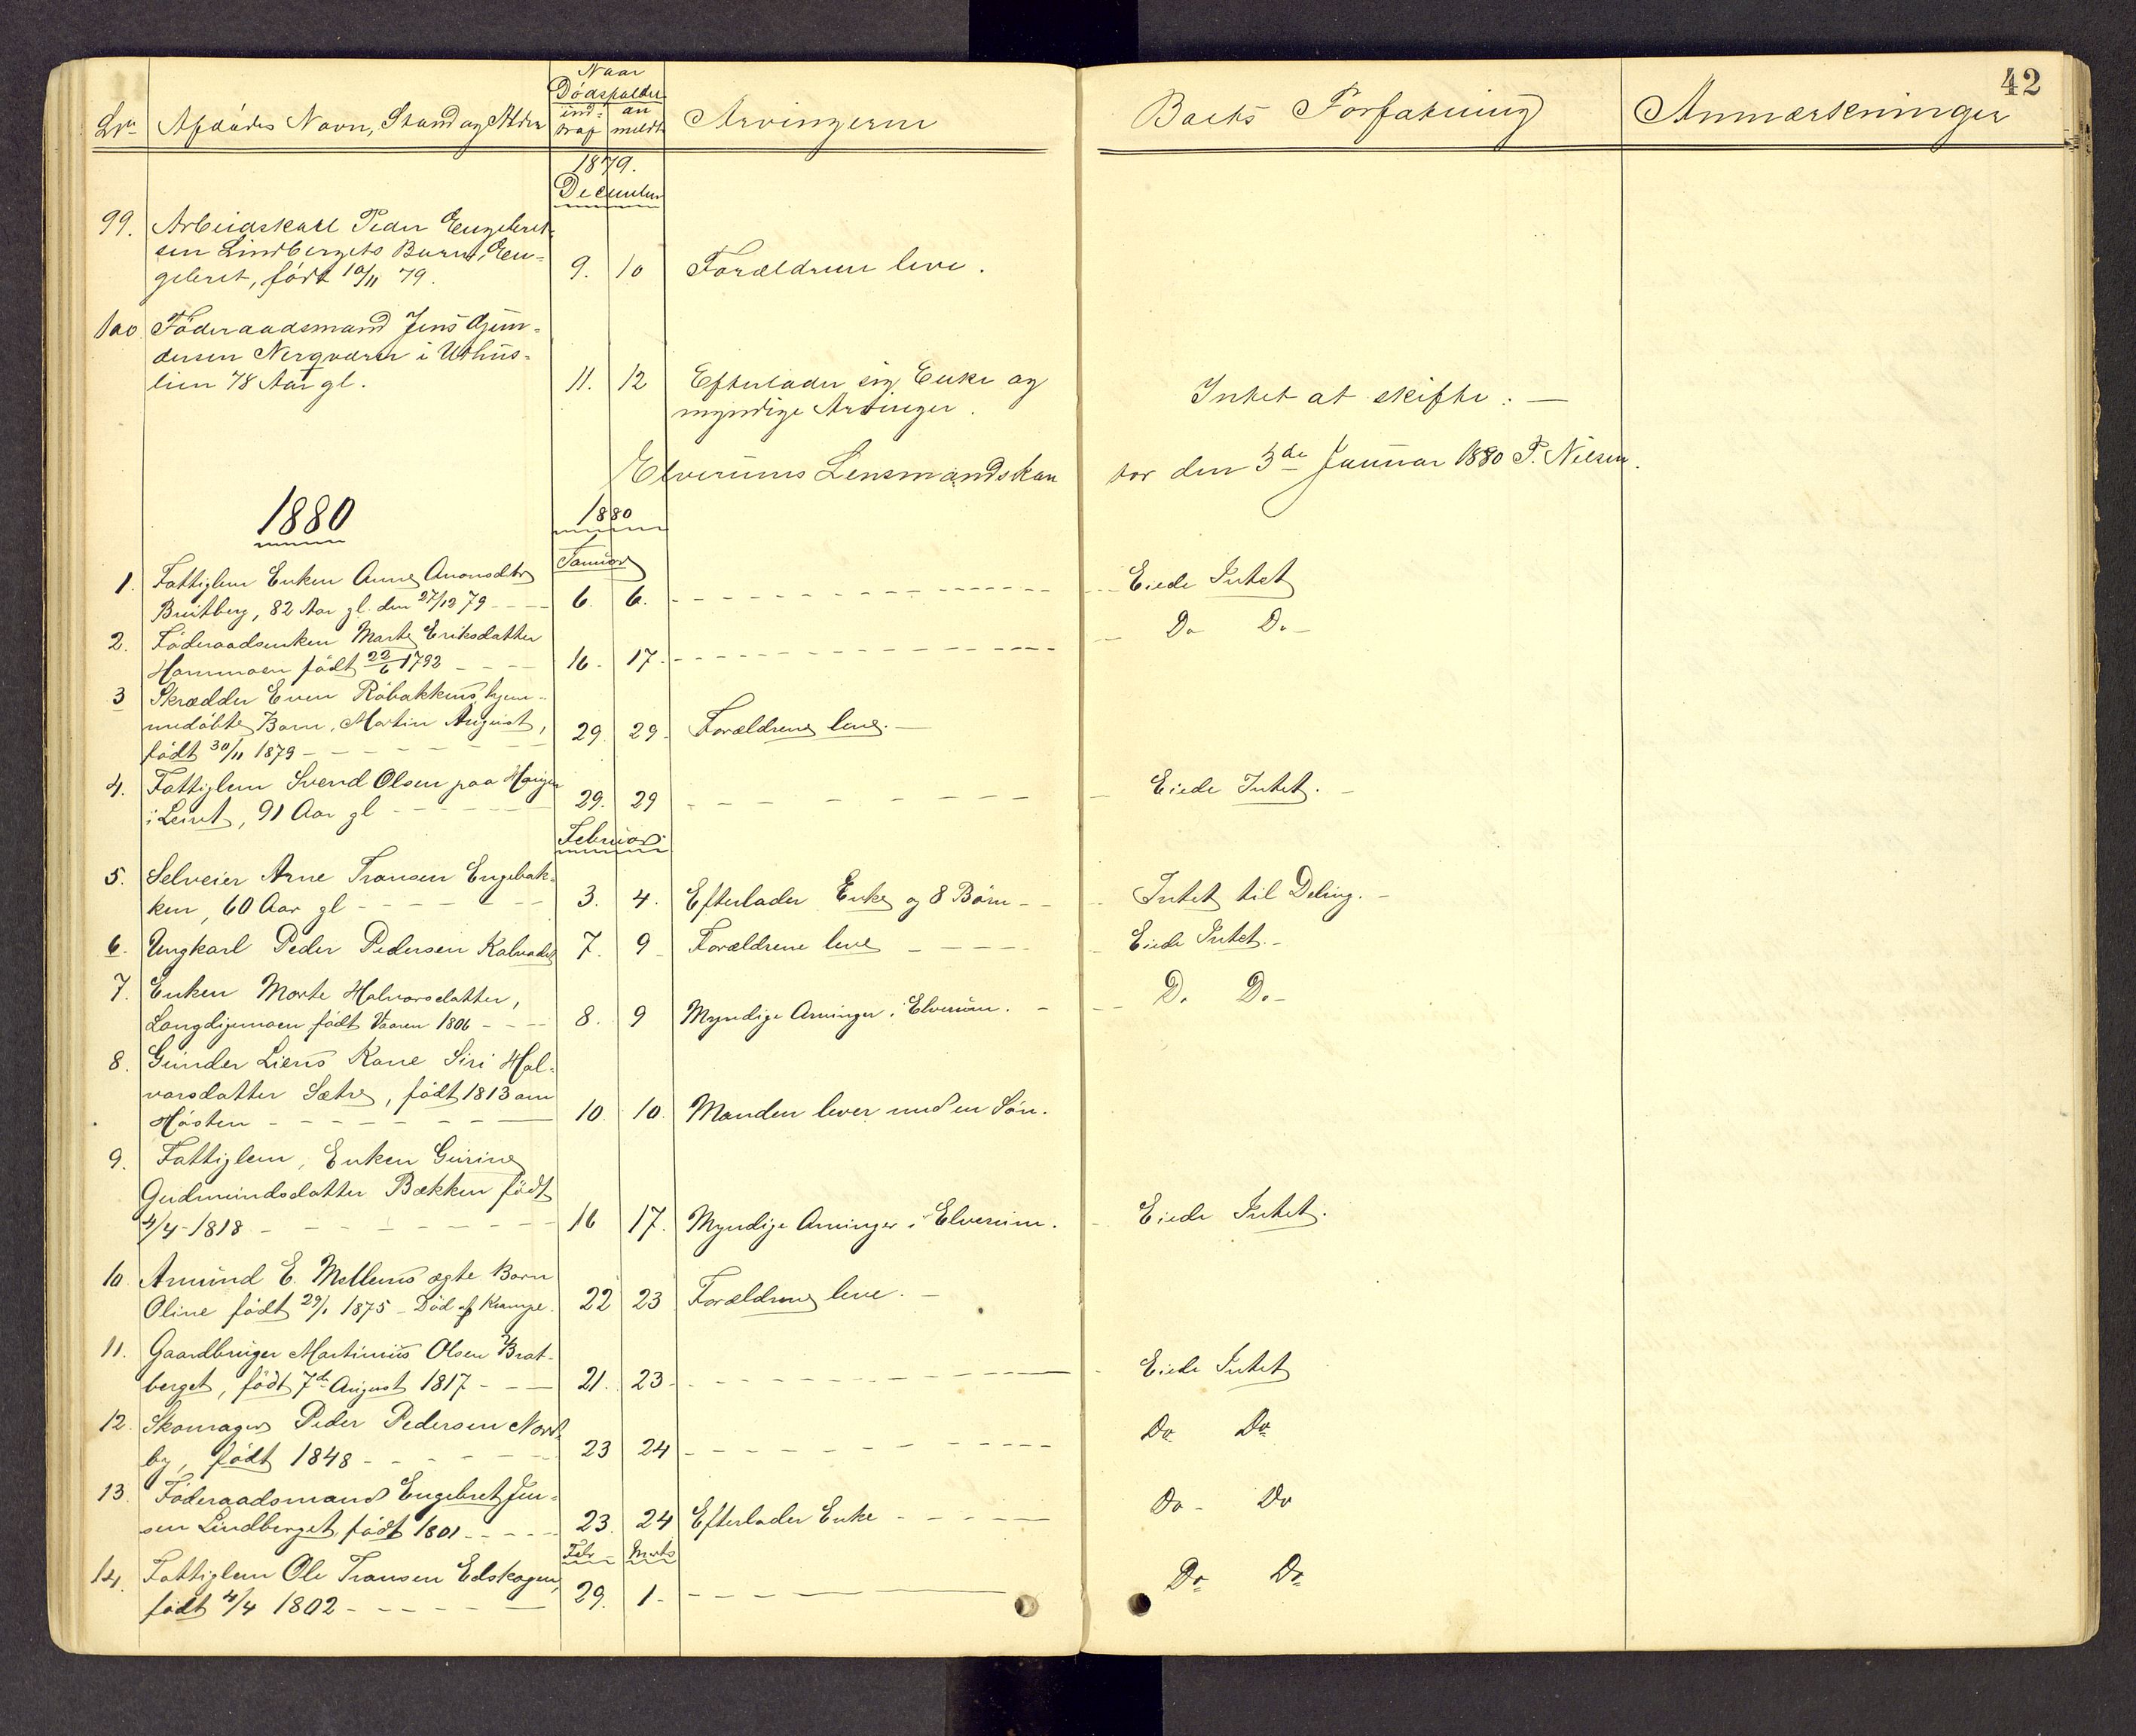 42
Lnr Afdødes Navn, Stand og Alder
Naar
Dødsfaldet
indtraf anmeldt
Arvingerne
Boets Forfatning
Anmærkninger
1879.
December
99. Arbeidskarl Peder Engebret-
sen Lindbergets Barn, En-
gebret, født 10/11 79. 9. 10 Forældrene leve.
100 Föderaadsmand Jens Gun-
dersen Nergværen i Uthus-
lien 78 Aar gl. 11. 12 Efterlader sig Enke og Intet at skifte. —
myndige Arvinger.
Elverums Lensmandskon tor den 3de Januar 1880 P. Nilsen.
1880 1880
Januar
1. Fattiglem Enken Anne Amonsdtr
Breitberg, 82 Aar gl. den 27/12 79 - - - 6. 6. - - - Eiede Intet
2. Föderaadsenken Marte Eriksdatter Do Do -
Hammoen født 22/6 1792 - - - 16. 17. - - -
3 Skrædder Even Råbakkens hjem-
medöbte Barn, Martin August, 29. 29. Forældrene leve. —
født 30/11 1879 - - -
4. Fattiglem Svend Olsen paa Haugen Eiede Intet. -
i Leiret, 91 Aar gl - - - 29. 29 - - -
Februar
5. Selveier Arne Transen Engebak-
ken, 60 Aar gl - - - 3. 4. Efterlader Enke og 8 Börn - - Intet til Deling. -
6. Ungkarl Peder Pedersen Kalvadet 7. 9 - Forældrene leve - - - Eiede Intet. -
7. Enken Marte Halvorsdatter, Do Do -
Langdigemoen født Vaaren 1806 - - - 8. 9 Myndige Arvinger i Elverum. -
8. Gunder Liens Kone Siri Hal-
vorsdatter Sætre, født 1813 om
Hösten - - - 10. 10. Manden lever med en Sön.
9. Fattiglem, Enken Gurine
Gudmundsdatter Bækken født
4/4 - 1818 - - - 16 17. Myndige Arvinger i Elverum. Eiede Intet.
10. Amund E. Mellems ægte Barn
Oline født 29/1 1875 - Död af Krampe. 22 23 Forældrene leve. -
11. Gaardbruger Martinius Olsen Brat-
berget, født 7de August 1817 - - - 21. 23 - - - Eiede Intet
12. Skomager Peder Pedersen Nord-
by, født 1848 - - - 23 24 - - - Do Do
13. Föderaadsmand Engebret Jen-
sen Lindberget, født 1801 - - - 23. 24 Efterlader Enke - - - Do - Do
Febr - Marts
14. Fattiglem Ole Transen Edskogen,
født 4/4 1802 - - - 29. 1 - - - Do Do